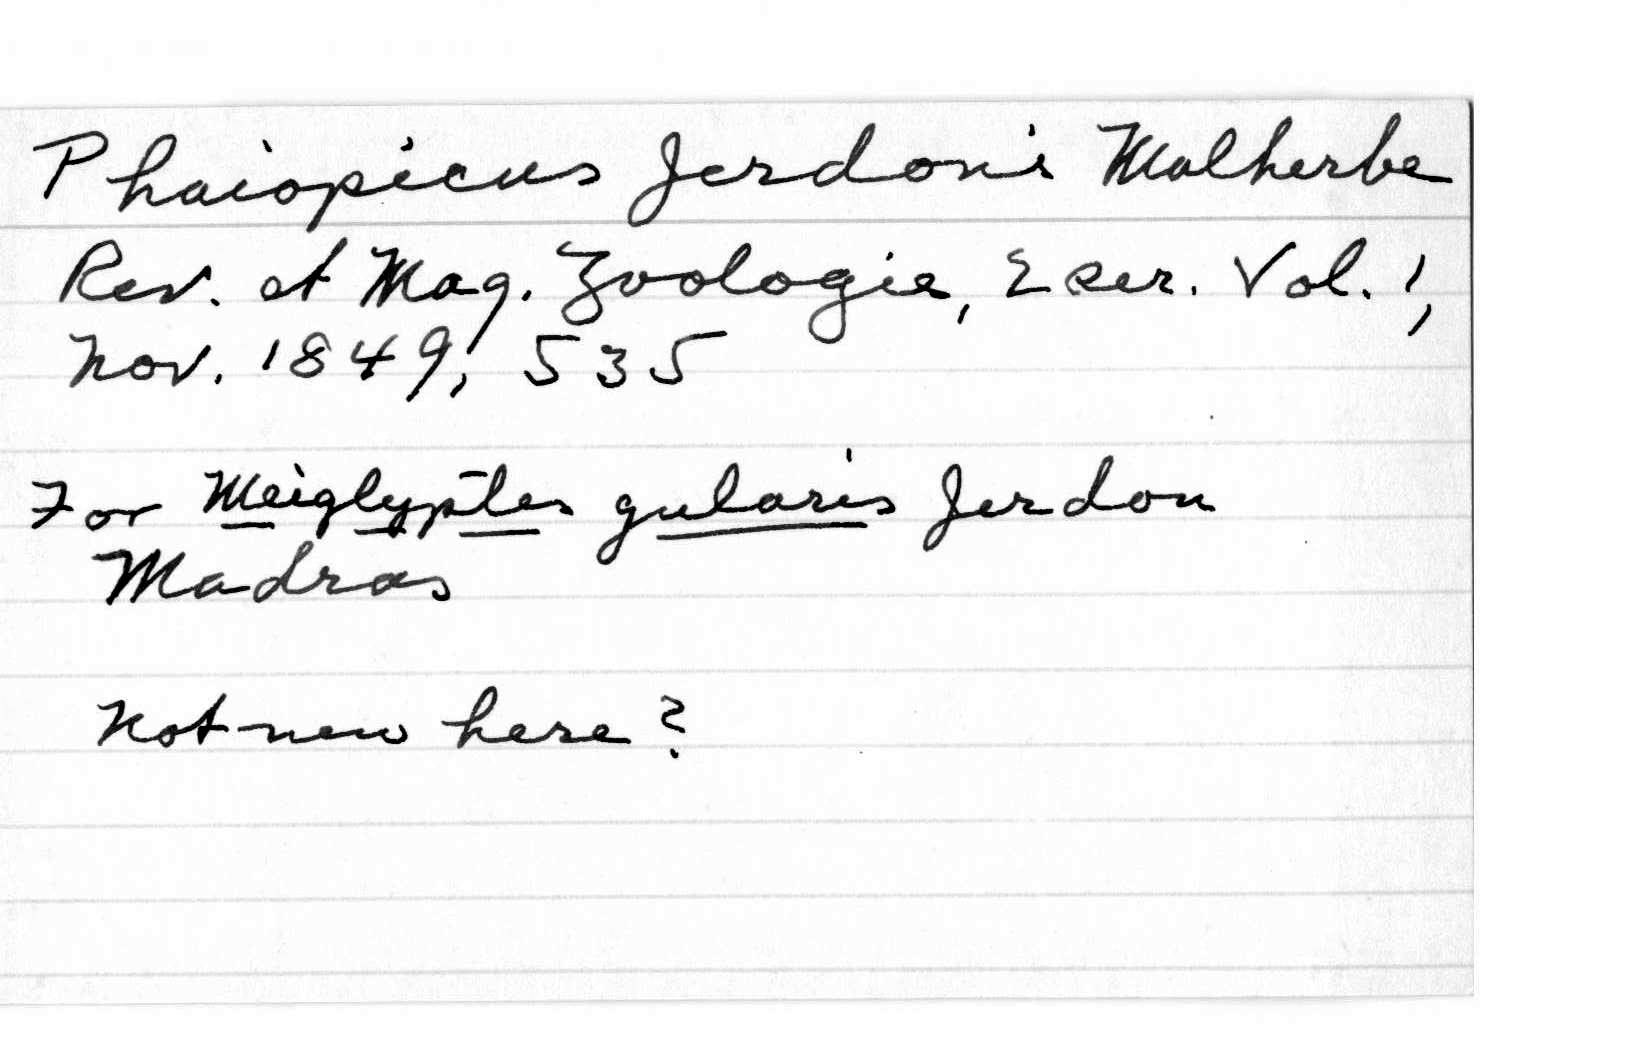 Phaiopicus Jerdonii Malherbe
Rev. et Mag. Zoologie, 2 ser. Vol. 1,
Nov. 1849, 535
For Meiglyptes gularis Jerdon
Madras
Not new here?